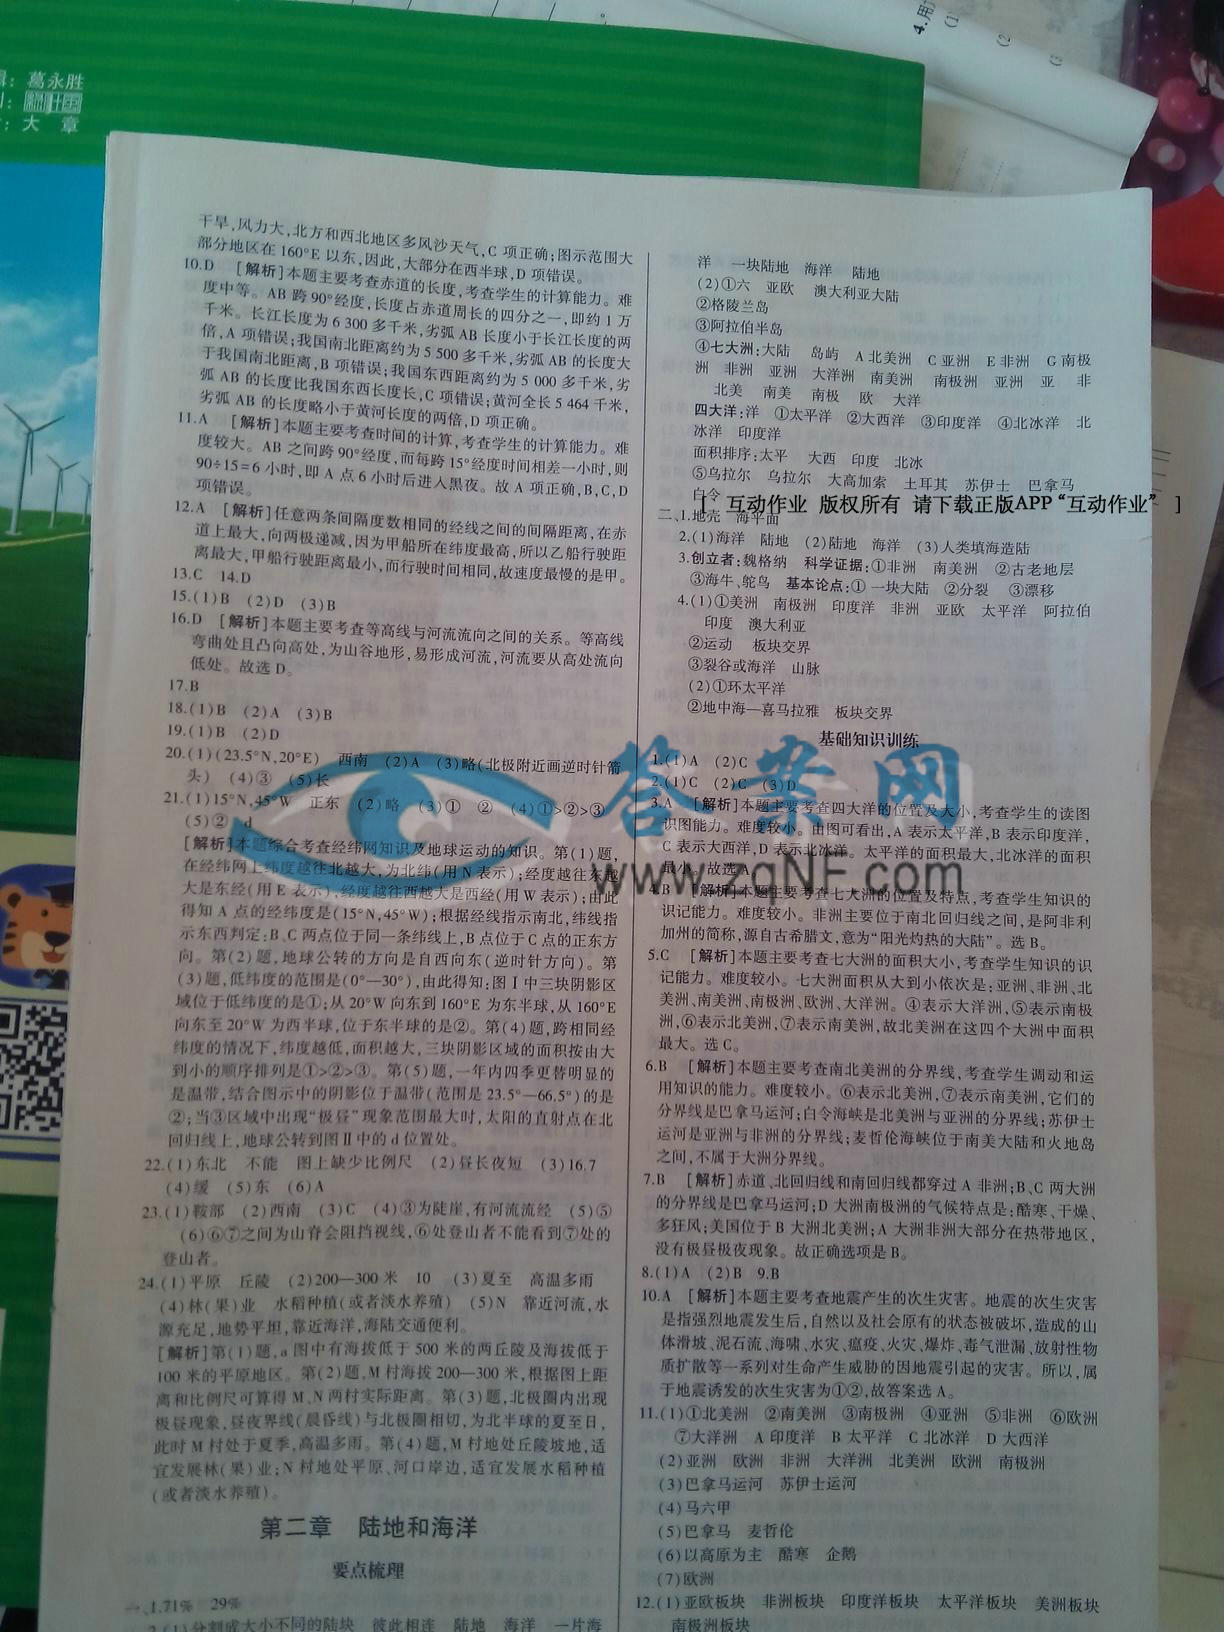 葛永胜
大 章
4.用
(1
(2
干旱,风力大,北方和西北地区多风沙天气,C 项正确;图示范围大
部分地区在 160°E 以东,因此,大部分在西半球,D 项错误。
10.D [解析]本题主要考查赤道的长度,考查学生的计算能力。难
度中等。AB 跨 90°经度,长度占赤道周长的四分之一,即约 1 万
千米。长江长度为 6 300 多千米,劣弧 AB 长度小于长江长度的两
倍,A 项错误;我国南北距离约为 5 500 多千米,劣弧 AB 的长度大
于我国南北距离,B 项错误;我国东西距离约为 5 000 多千米,劣
弧 AB 的长度比我国东西长度长,C 项错误;黄河全长 5 464 千米,
劣弧 AB 的长度略小于黄河长度的两倍,D 项正确。
11.A [解析]本题主要考查时间的计算,考查学生的计算能力。难
度较大。AB 之间跨 90°经度,而每跨 15°经度时间相差一小时,则
90÷15=6 小时,即 A 点 6 小时后进入黑夜。故 A 项正确,B,C,D
项错误。
12.A [解析]任意两条间隔度数相同的经线之间的间隔距离,在赤
道上最大,向两极递减,因为甲船所在纬度最高,所以乙船行驶距
离最大,甲船行驶距离最小,而行驶时间相同,故速度最慢的是甲。
13.C 14.D
15.(1)B (2)D (3)B
16.D [解析]本题主要考查等高线与河流流向之间的关系。等高线
弯曲处且凸向高处,为山谷地形,易形成河流,河流要从高处流向
低处。故选 D。
17.B
18.(1)B (2)A (3)B
19.(1)B (2)D
20.(1)(23.5°N,20°E) 西南 (2)A (3)略(北极附近画逆时针箭
头) (4)③ (5)长
21.(1)15°N,45°W 正东 (2)略 (3)① ② (4)①>②>③
(5)② d
[解析]本题综合考查经纬网知识及地球运动的知识。第(1)题,
在经纬网上纬度越往北越大,为北纬(用 N 表示);经度越往东越
大是东经(用 E 表示),经度越往西越大是西经(用 W 表示);由此
得知 A 点的经纬度是(15°N,45°W);根据经线指示南北,纬线指
示东西判定:B、C 两点位于同一条纬线上,B 点位于 C 点的正东方
向。第(2)题,地球公转的方向是自西向东(逆时针方向)。第
(3)题,低纬度的范围是(0°—30°),由此得知:图Ⅰ中三块阴影区
域位于低纬度的是①;从 20°W 向东到 160°E 为东半球,从 160°E
向东至 20°W 为西半球,位于东半球的是②。第(4)题,跨相同经
纬度的情况下,纬度越低,面积越大,三块阴影区域的面积按由大
到小的顺序排列是①>②>③。第(5)题,一年内四季更替明显的
是温带,结合图示中的阴影位于温带(范围是 23.5°—66.5°)的是
②;当③区域中出现“极昼”现象范围最大时,太阳的直射点在北
回归线上,地球公转到图Ⅱ中的 d 位置处。
22.(1)东北 不能 图上缺少比例尺 (2)昼长夜短 (3)16.7
(4)缓 (5)东 (6)A
23.(1)鞍部 (2)西南 (3)C (4)③为陡崖,有河流流经 (5)⑤
(6)⑥⑦之间为山脊会阻挡视线,⑥处登山者不能看到⑦处的
登山者。
24.(1)平原 丘陵 (2)200—300 米 10 (3)夏至 高温多雨
(4)林(果)业 水稻种植(或者淡水养殖) (5)N 靠近河流,水
源充足,地势平坦,靠近海洋,海陆交通便利。
[解析]第(1)题,a 图中有海拔低于 500 米的两丘陵及海拔低于
100 米的平原地区。第(2)题,M 村海拔 200—300 米,根据图上距
离和比例尺可算得 M、N 两村实际距离。第(3)题,北极圈内出现
极昼现象,昼夜界线(晨昏线)与北极圈相切,为北半球的夏至日,
此时 M 村处于夏季,高温多雨。第(4)题,M 村地处丘陵坡地,适
宜发展林(果)业;N 村地处平原、河口岸边,适宜发展水稻种植
(或者淡水养殖)。
第二章 陆地和海洋
要点梳理
一、1.71% 29%
2.(1)分割成大小不同的陆块 彼此相连 陆地 海洋 一片海
洋 一块陆地 海洋 陆地
(2)①六 亚欧 澳大利亚大陆
②格陵兰岛
③阿拉伯半岛
④七大洲:大陆 岛屿 A 北美洲 C 亚洲 E 非洲 G 南极
洲 非洲 亚洲 大洋洲 南美洲 南极洲 亚洲 亚 非
北美 南美 南极 欧 大洋
四大洋:洋 ①太平洋 ②大西洋 ③印度洋 ④北冰洋 北
冰洋 印度洋
面积排序:太平 大西 印度 北冰
⑤乌拉尔 乌拉尔 大高加索 土耳其 苏伊士 巴拿马
白令
[ 互动作业 版权所有 请下载正版APP “互动作业” ]
二、1.地壳 海平面
2.(1)海洋 陆地 (2)陆地 海洋 (3)人类填海造陆
3.创立者:魏格纳 科学证据:①非洲 南美洲 ②古老地层
③海牛、鸵鸟 基本论点:① 一块大陆 ②分裂 ③漂移
4.(1)①美洲 南极洲 印度洋 非洲 亚欧 太平洋 阿拉伯
印度 澳大利亚
②运动 板块交界
③裂谷或海洋 山脉
(2)①环太平洋
②地中海—喜马拉雅 板块交界
基础知识训练
1.(1)A (2)C
2.(1)C (2)C (3)D
3.A [解析]本题主要考查四大洋的位置及大小,考查学生的读图
识图能力。难度较小。由图可看出,A 表示太平洋,B 表示印度洋,
C 表示大西洋,D 表示北冰洋。太平洋的面积最大,北冰洋的面积
最小。故选 A。
答案网
www.zqNF.com
4.B [解析]本题主要考查七大洲的位置及特点,考查学生知识的
识记能力。难度较小。非洲主要位于南北回归线之间,是阿非利
加州的简称,源自古希腊文,意为“阳光灼热的大陆”。选 B。
5.C [解析]本题主要考查七大洲的面积大小,考查学生知识的识
记能力。难度较小。七大洲面积从大到小依次是:亚洲、非洲、北
美洲、南美洲、南极洲、欧洲、大洋洲。④表示大洋洲,⑤表示南极
洲,⑥表示北美洲,⑦表示南美洲,故北美洲在这四个大洲中面积
最大。选 C。
6.B [解析]本题主要考查南北美洲的分界线,考查学生调动和运
用知识的能力。难度较小。⑥表示北美洲,⑦表示南美洲,它们的
分界线是巴拿马运河;白令海峡是北美洲与亚洲的分界线;苏伊士
运河是亚洲与非洲的分界线;麦哲伦海峡位于南美大陆和火地岛
之间,不属于大洲分界线。
7.B [解析]赤道、北回归线和南回归线都穿过 A 非洲;B、C 两大洲
的分界线是巴拿马运河;D 大洲南极洲的气候特点是:酷寒、干燥、
多狂风;美国位于 B 大洲北美洲;A 大洲非洲大部分在热带地区,
没有极昼极夜现象。故正确选项是 B。
8.(1)A (2)B 9.B
10.A [解析]本题主要考查地震产生的次生灾害。地震的次生灾害
是指强烈地震发生后,自然以及社会原有的状态被破坏,造成的山
体滑坡、泥石流、海啸、水灾、瘟疫、火灾、爆炸、毒气泄漏、放射性物
质扩散等一系列对生命产生威胁的因地震引起的灾害。所以,属
于地震诱发的次生灾害为①②,故答案选 A。
11.(1)①北美洲 ②南美洲 ③南极洲 ④亚洲 ⑤非洲 ⑥欧洲
⑦大洋洲 A 印度洋 B 太平洋 C 北冰洋 D 大西洋
(2)亚洲 欧洲 非洲 大洋洲 北美洲 欧洲 南极洲
(3)巴拿马运河 苏伊士运河
(4)马六甲
(5)巴拿马 麦哲伦
(6)以高原为主 酷寒 企鹅
(7)欧洲
12.(1)亚欧板块 非洲板块 印度洋板块 太平洋板块 美洲板块
南极洲板块